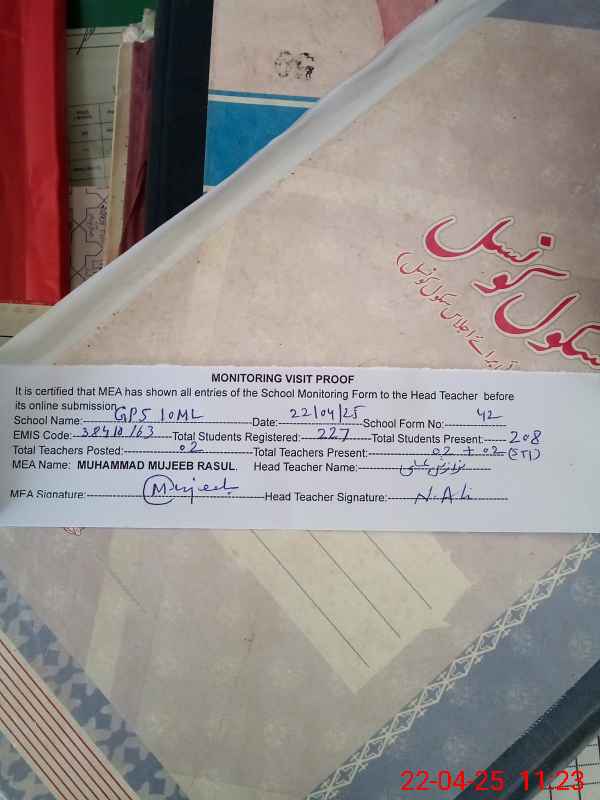 سکول کونسل
MONITORING VISIT PROOF
It is certified that MEA has shown all entries of the School Monitoring Form to the Head Teacher before
its online submission
School Name: GPS 10ML Date: 22/04/25 School Form No: 42
EMIS Code: 38410163 Total Students Registered: 227 Total Students Present: 208
Total Teachers Posted: 02 Total Teachers Present: 02 + 02 (STI)
MEA Name: MUHAMMAD MUJEEB RASUL. Head Teacher Name:
MEA Signature: Mujeeb Head Teacher Signature: N. Ali
22-04-25 11:23